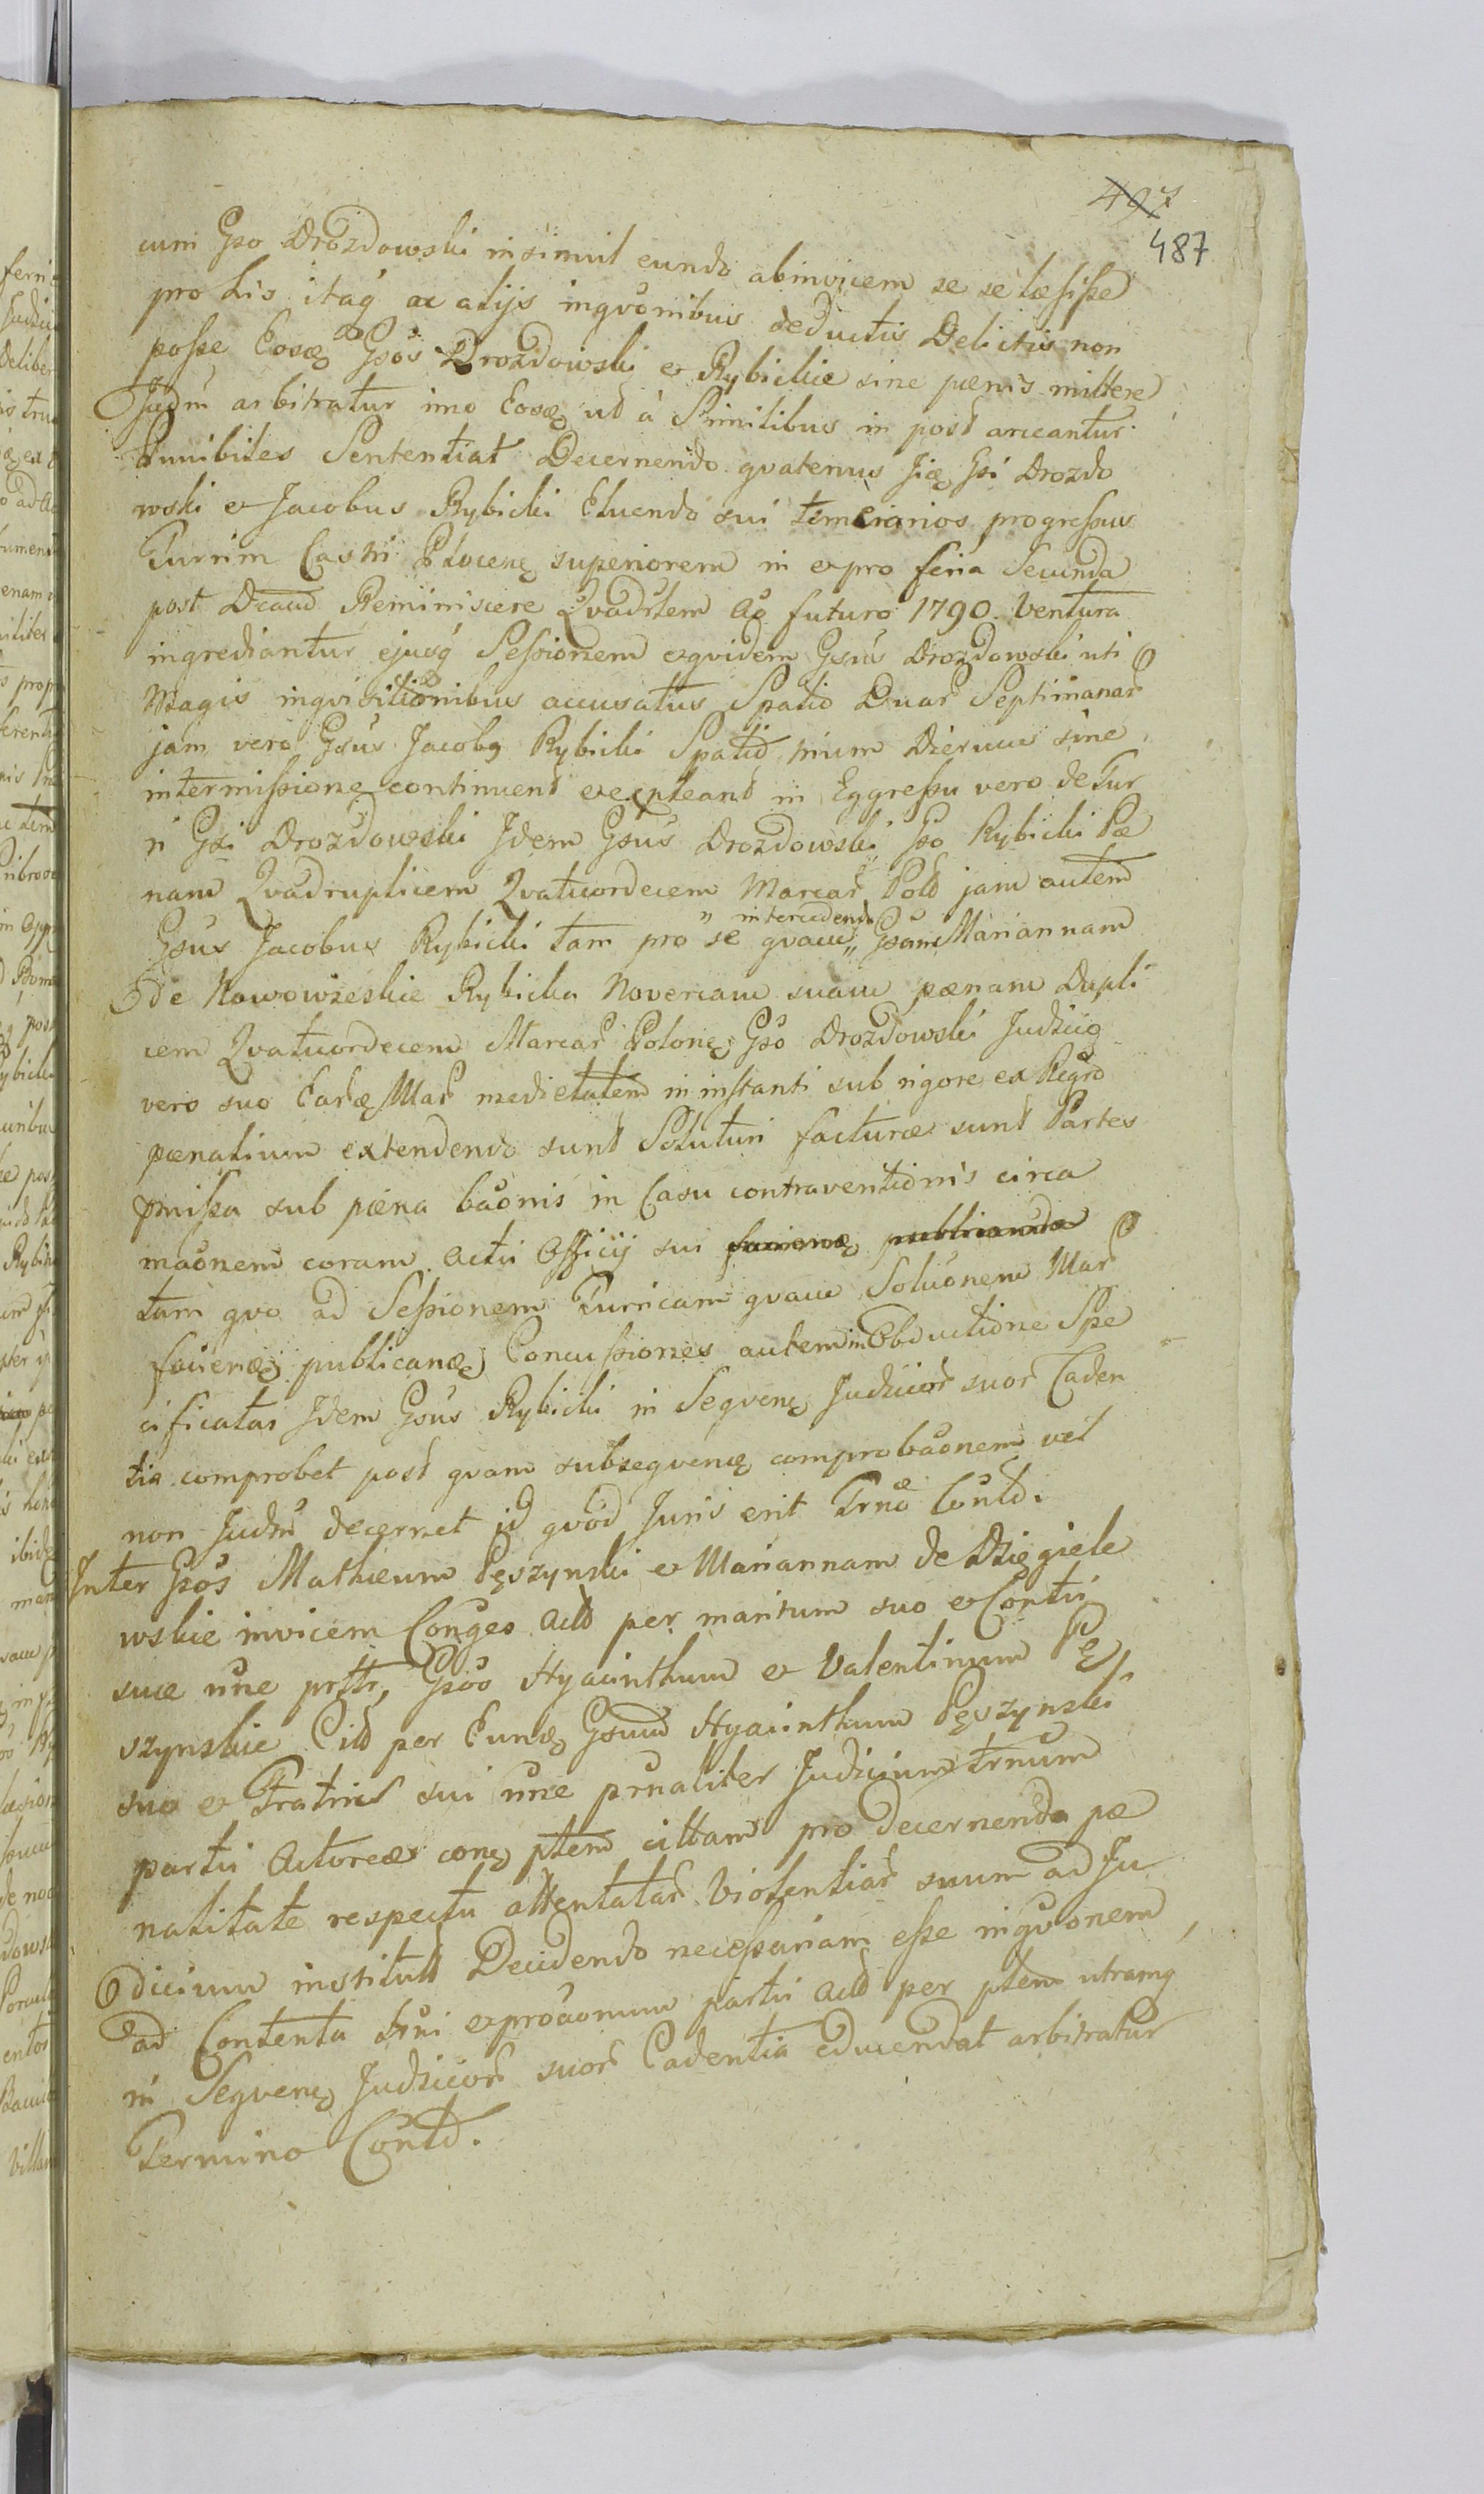 497
487
cum Gso Drozdowski insimul eundo abinvicem se se læsisse
pro his itaq ac alijs inqvonibus deductis Delictis non
posse Eosq Gsos Drozdowski et Rybickie sine pænis mittere
Judm arbitratur imo Eosq ut a Similibus in post arceantur
Punibiles Sententiat Decernendo qvatenus Jiq Gsi Drozdo
wski et Jacobus Rybicki Eluendo sui temerarios progressus
Turrim Castri Plocenq superiorem in et pro feria Secunda
post Dcam Reminiscere Qvadrlem Ao futuro 1790. Ventura
ingrediantur ejusq Sessionem et qvidem Gsus Drozdowski uti
Magis inqvisitionibus accusatus Spatio Duar Septimanar
jam vero Gsus Jacobq Rybicki Spatio trium Dierum sine
intermissione continuent et expleant in Eggressu vero de Tur
ri Gsi Drozdowski Idem Gsus Drozdowski Gso Rybicki Pæ
nam Qvadruplicem Qvatuordecem Marcar Pold jam autem
Gsus Jacobus Rybicki tam pro se qvam „ intercedendo „ Gsam Mariannam
de Nowowieskie Rybicka Novercam suam pænam Dupli
cem Qvatuordecem Marcar Polonq Gso Drozdowski Judiciq
vero suo Eardq Mar medietatem in instanti sub rigore ex Regro
pænalium extendendo sunt Soluturi facturæ sunt Partes
pmissa sub pæna baonis in Casu contraventionis circa
maonem coram Actu Officij sui facienq publicanda
tam qvo ad Sessionem Turricam qvam Soluonem Mar
facienq publicanq Concussiones autem in Obductione Spe
cificatas Idem Gsus Rybicki in Seqvenq Judicior suor Caden
tia comprobet post qvam subseqvenq comprobaonem vel
non Judm decernet id qvod Juris erit Trno Contd.
Inter Gsos Mathæum Pęszynski et Mariannam de Dzięgiele
wskie invicem Conges Actd per maritum suo et Contli
suæ nne prttr, Gsos Hyacinthum et Valentinum Pę
szynskie Citd per Eundq Gsum Hyacinthum Pęszynski
suo et Fratris sui nne prnaliter Judicium trnum
partii Actoreæ conq ptem cittam pro decernenda pæ
nalitate respectu attentatar Violentiar suum ad Ju
dicium institutd Decidendo necessariam esse inqvonem
ad Contenta trni et proaonum partii Actd per ptem utramq
in Seqvenq Judicior suor Cadentia educendat arbitratur
Termino Contd.